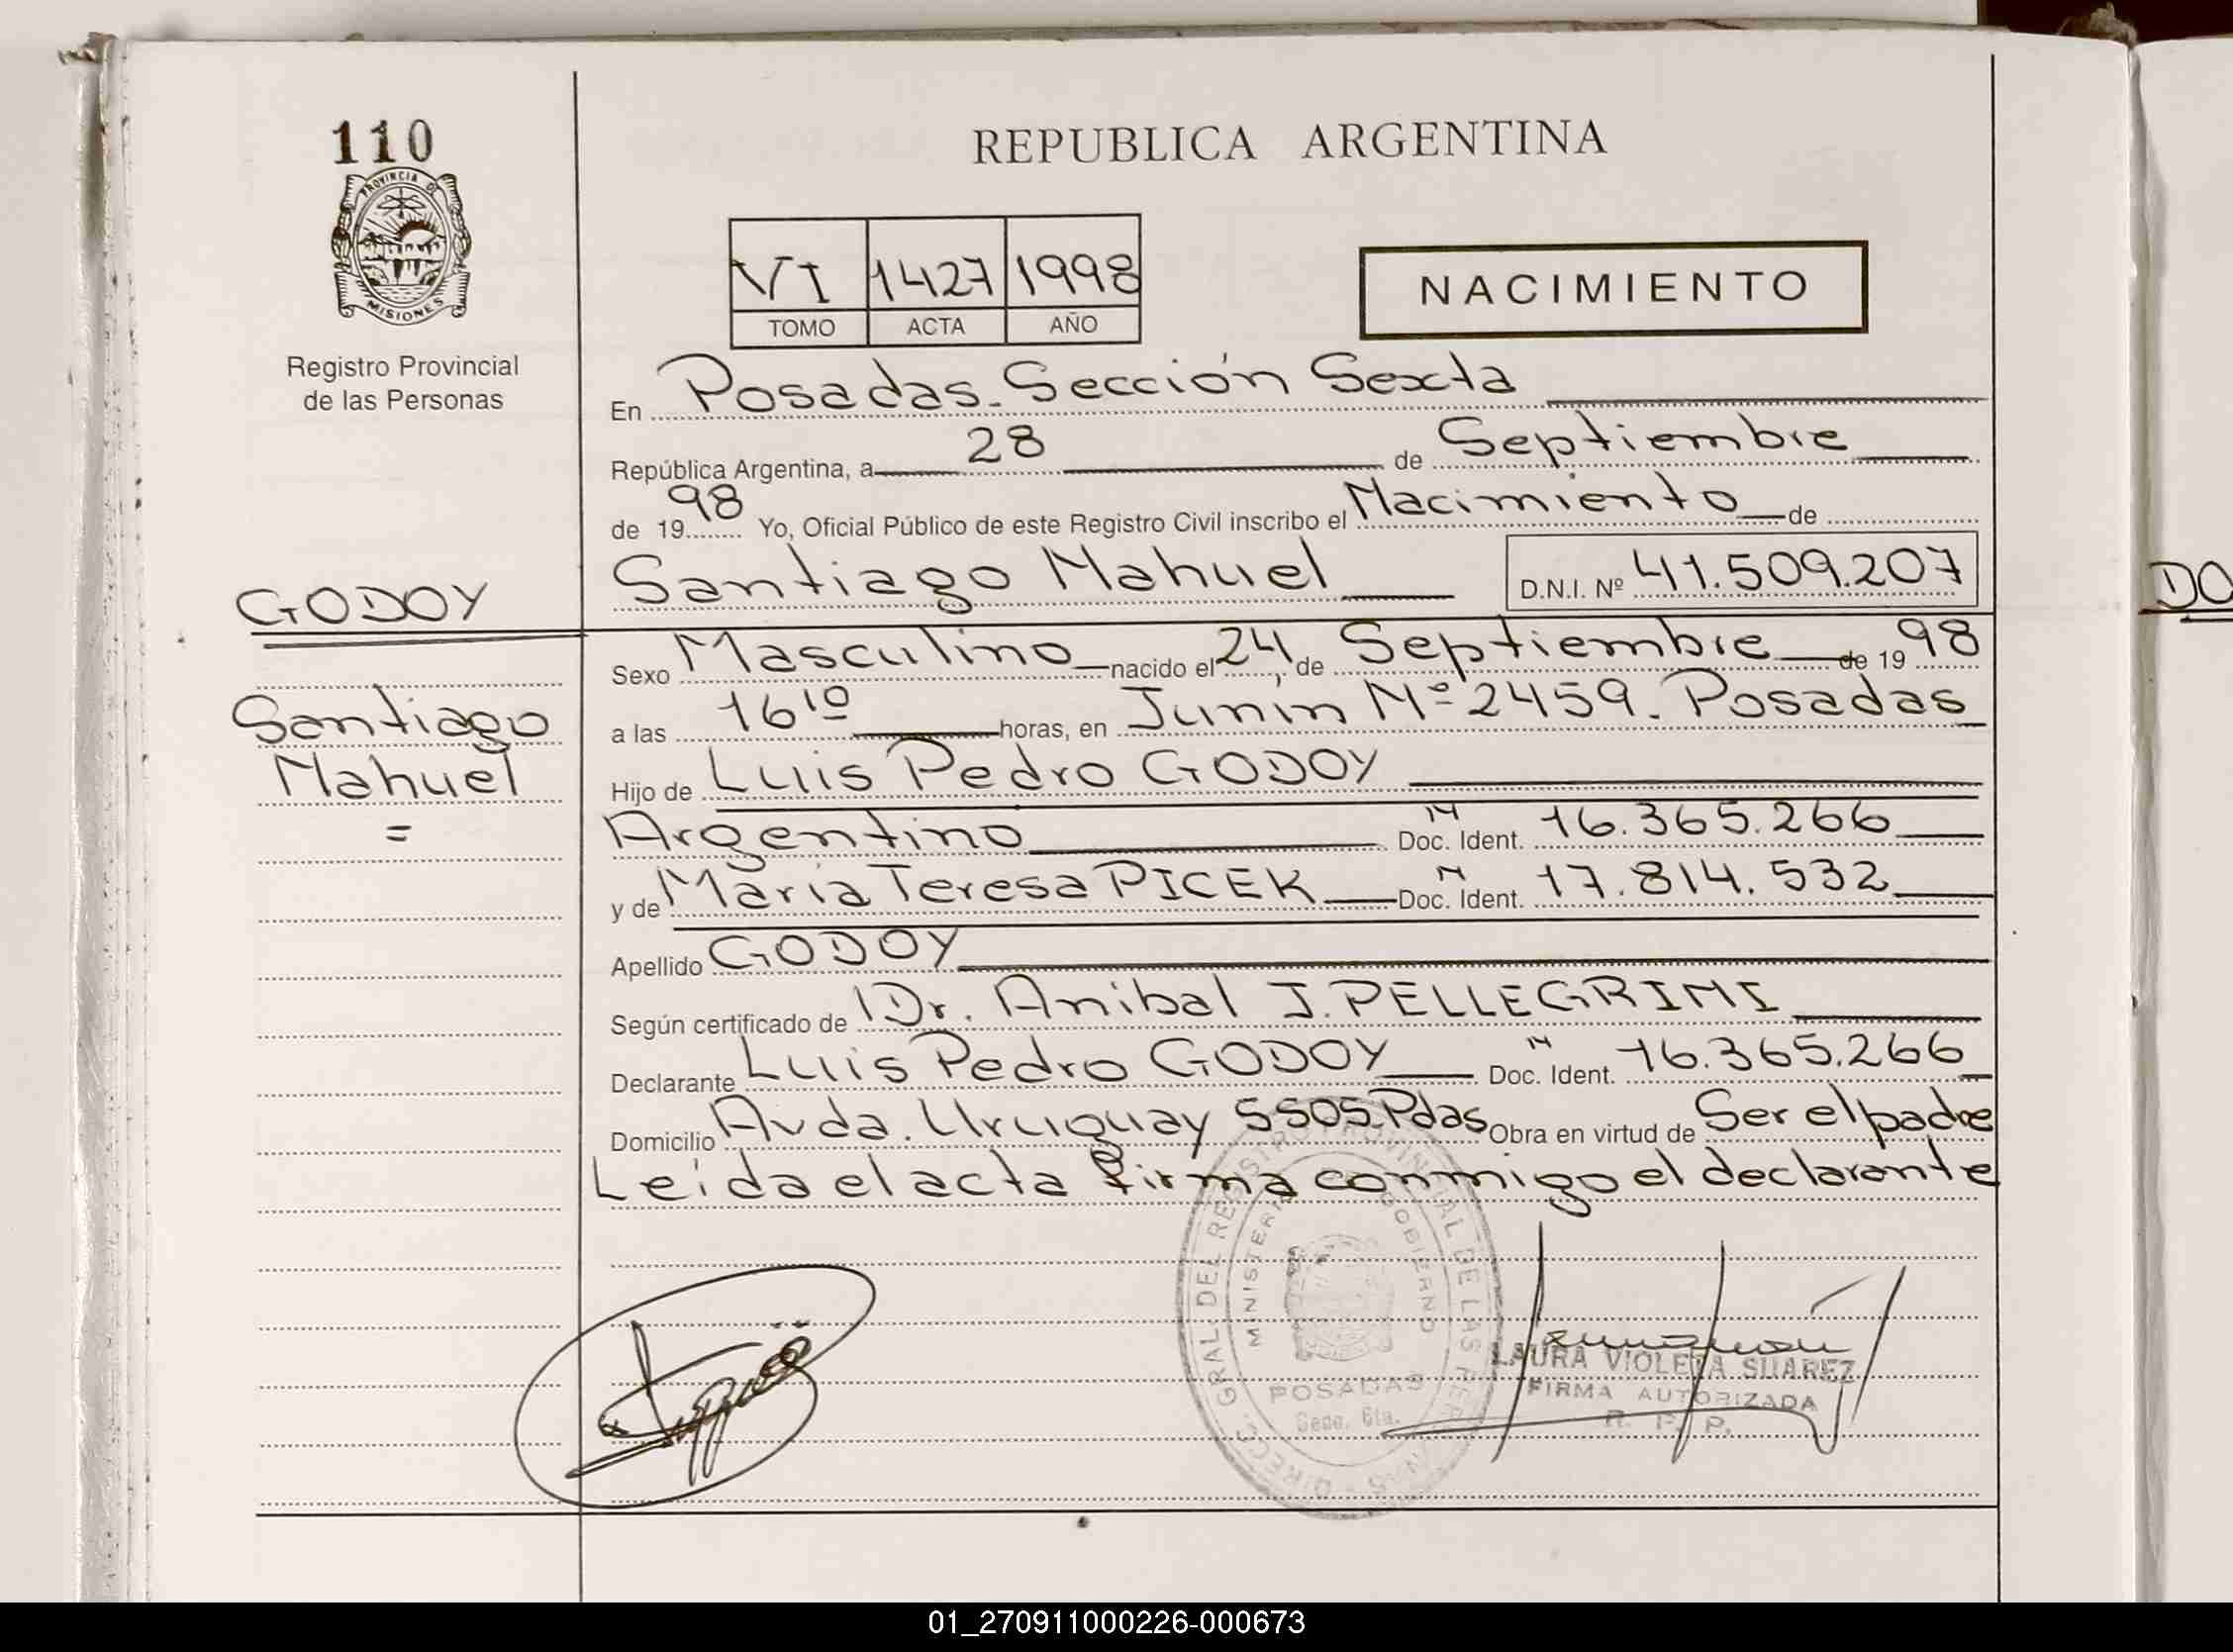 110
PROVINCIA DE
MISIONES
Registro Provincial
de las Personas
REPUBLICA ARGENTINA
VI 1427 1998
TOMO ACTA AÑO
NACIMIENTO
En Posadas. Sección Sexta
República Argentina, a 28 de Septiembre
de 1998 Yo, Oficial Público de este Registro Civil inscribo el Nacimiento de
Santiago Nahuel D.N.I. Nº 41.509.207
GODOY
Santiago
Nahuel
=
DO
Sexo Masculino nacido el 24 de Septiembre de 1998
a las 16¹⁰ horas, en Junín Nº 2459. Posadas
Hijo de Luis Pedro GODOY
Argentino Doc. Ident. 16.365.266
y de María Teresa PICEK Doc. Ident. 17.814.532
Apellido GODOY
Según certificado de Dr. Anibal J. PELLEGRINI
Declarante Luis Pedro GODOY Doc. Ident. 16.365.266
Domicilio Avda. Uruguay 5505 Pdas Obra en virtud de Ser el padre
Leída el acta firma conmigo el declarante
DIRECC. GRAL. DEL REGISTRO PROVINCIAL DE LAS PERSONAS
MINISTERIO GOBIERNO
POSADAS
Secc. 6ta.
LAURA VIOLETA SUAREZ
FIRMA AUTORIZADA
R. P. P.
01_270911000226-000673